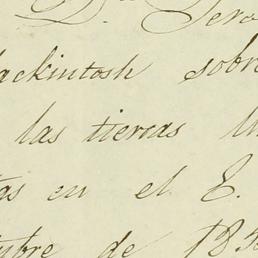 Dn Gero
ackintosh sobre
las tierras
tas en el E.
ubre de 18